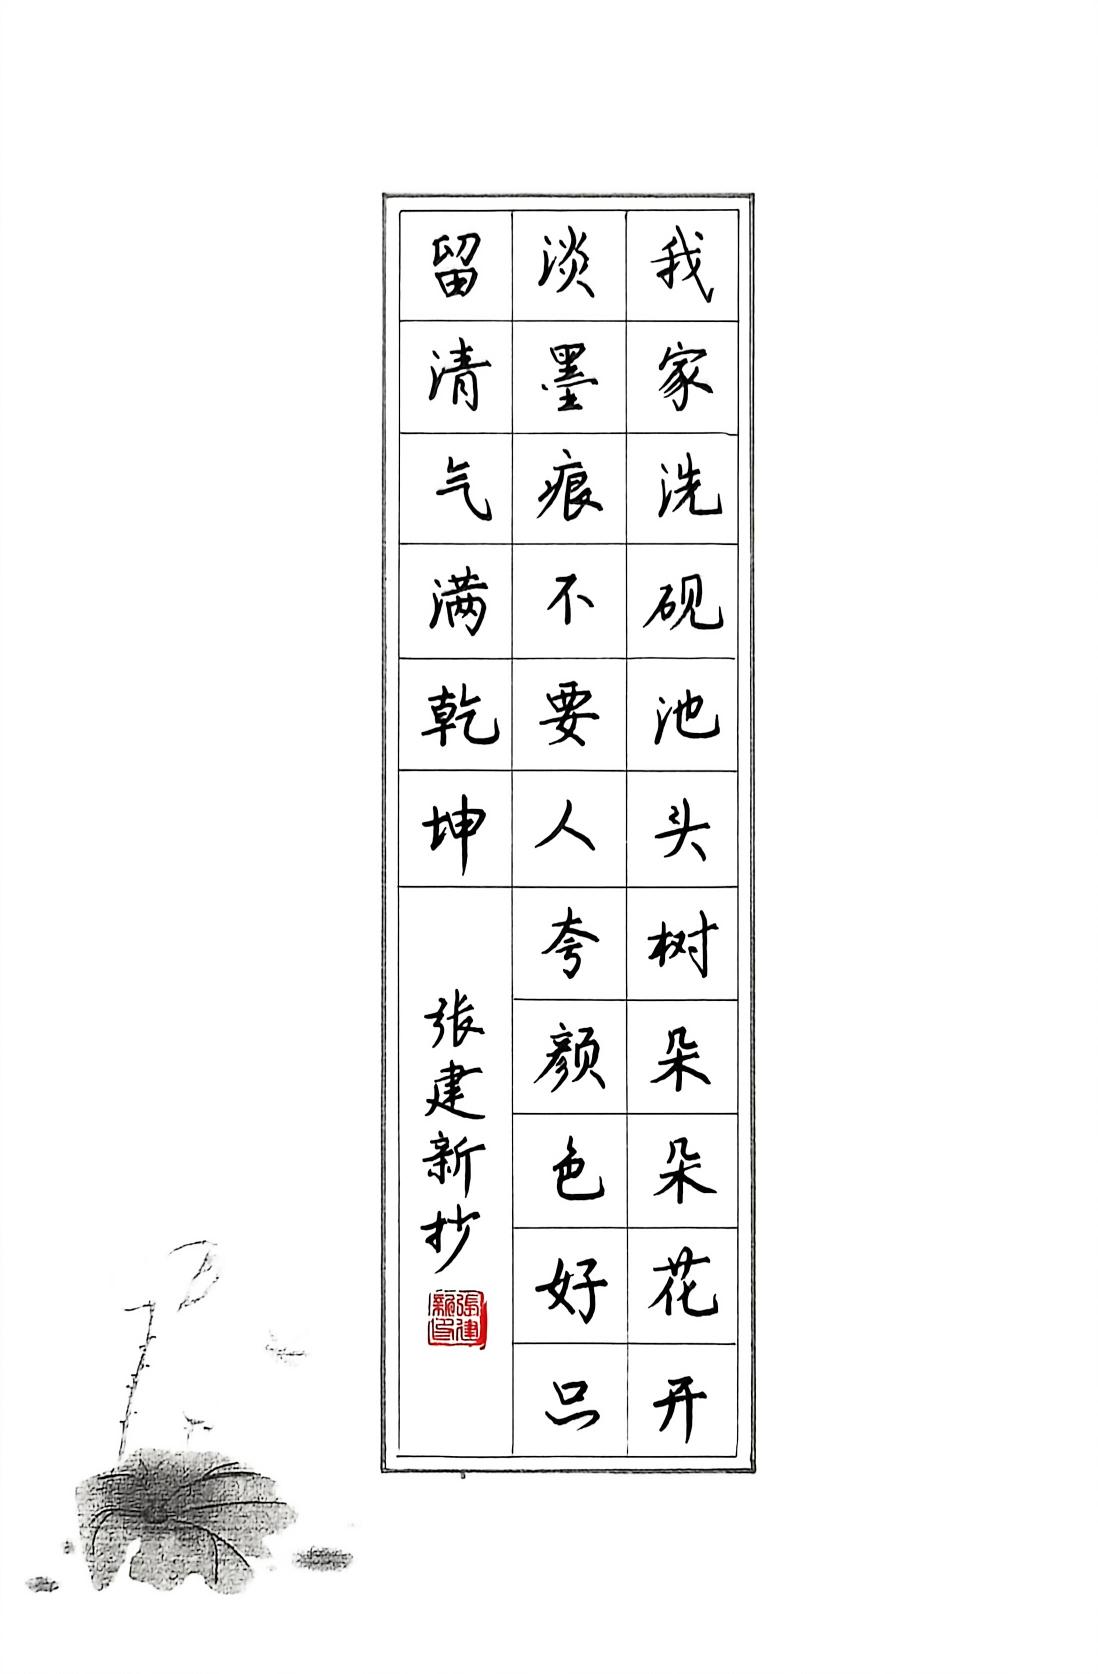 我家洗砚池头树朵朵花开
淡墨痕不要人夸颜色好只
留清气满乾坤
张建新抄
張建新印